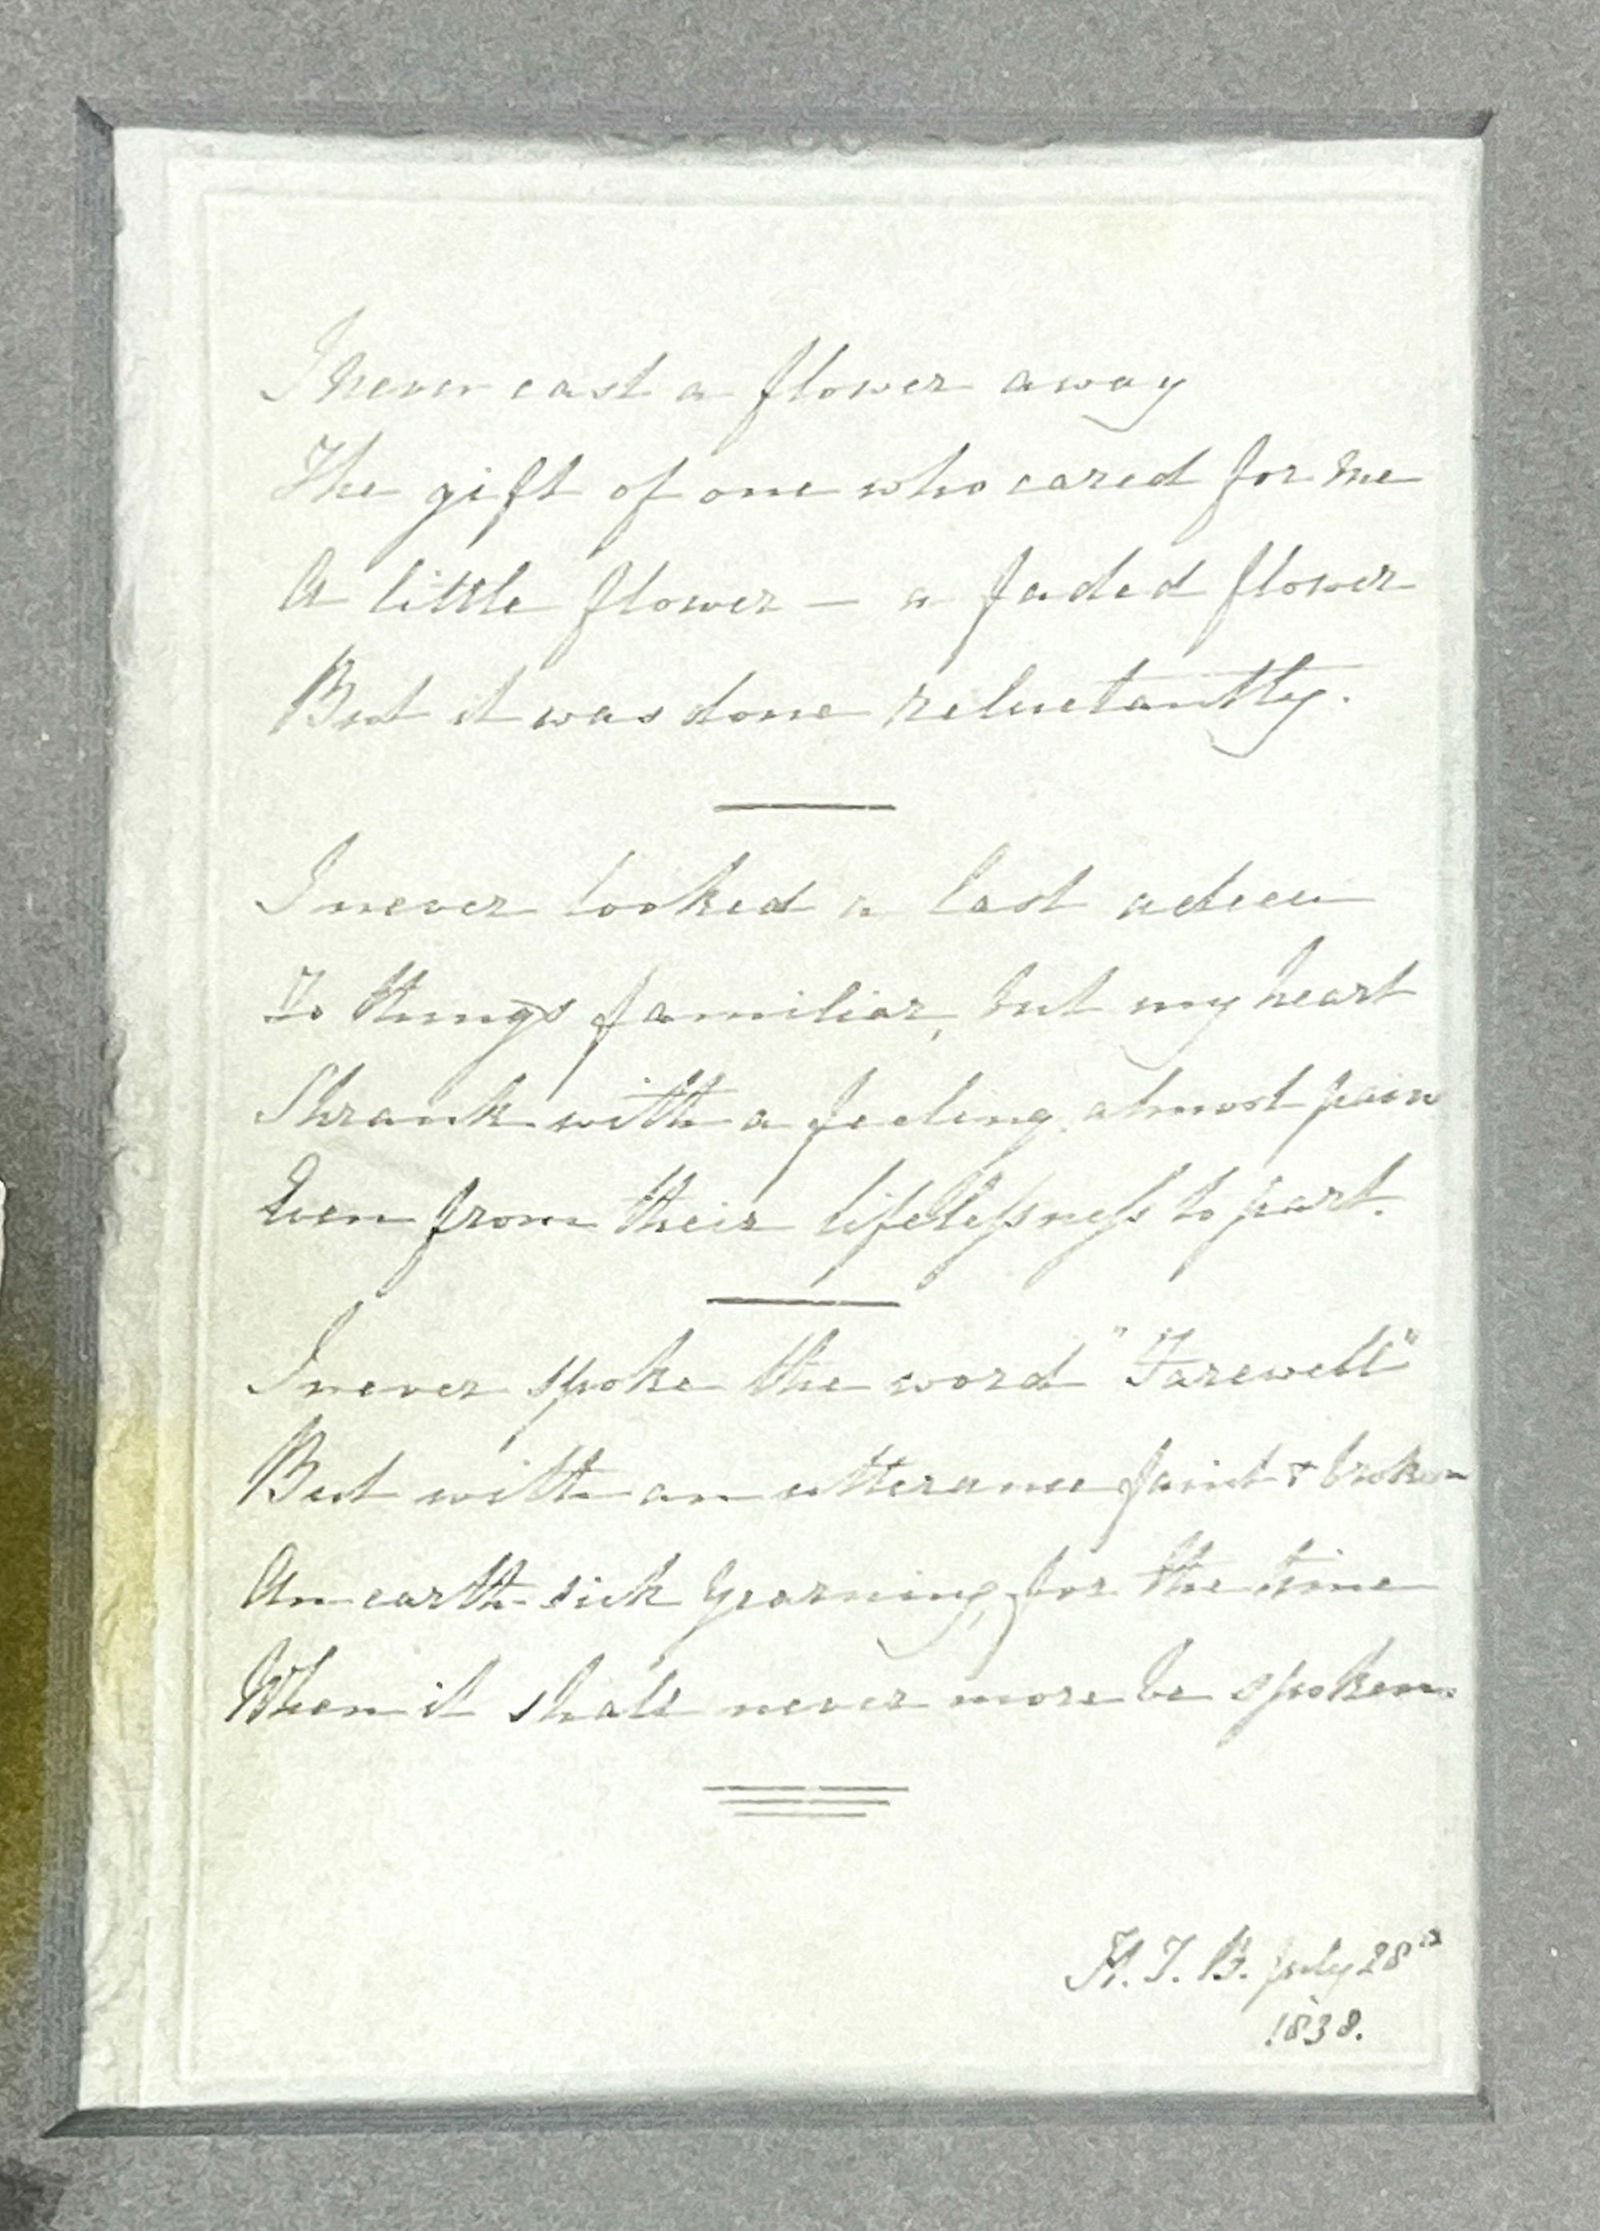 I never cast a flower away
The gift of one who cared for me
A little flower — a faded flower
But it was done reluctantly.
I never looked a last adieu
To things familiar, but my heart
Shrank with a feeling almost pain
Even from their lifelessness to part.
I never spoke the word "Farewell"
But with an utterance faint & broken
An earth-sick yearning for the time
When it shall never more be spoken.
H. T. B. July 28th
1838.